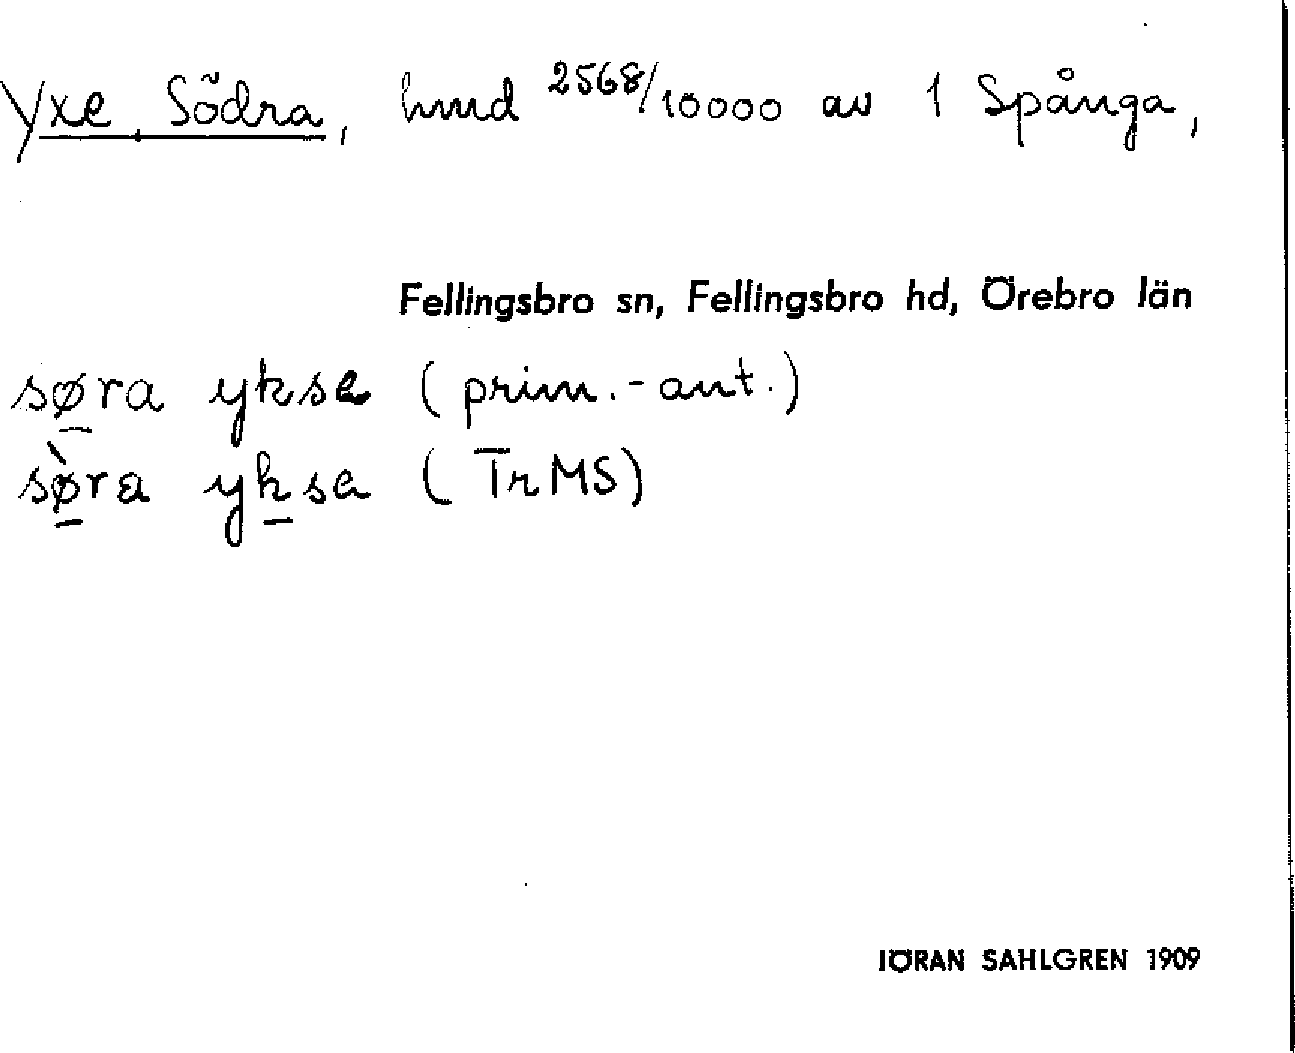 Yxe, Södra, hmd 2568/10000 av 1 Spånga,
Fellingsbro sn, Fellingsbro hd, Örebro län
sø̱ra yksa (prim.-ant.)
sø̱̀ra yḵsa (TrMS)
JÖRAN SAHLGREN 1909